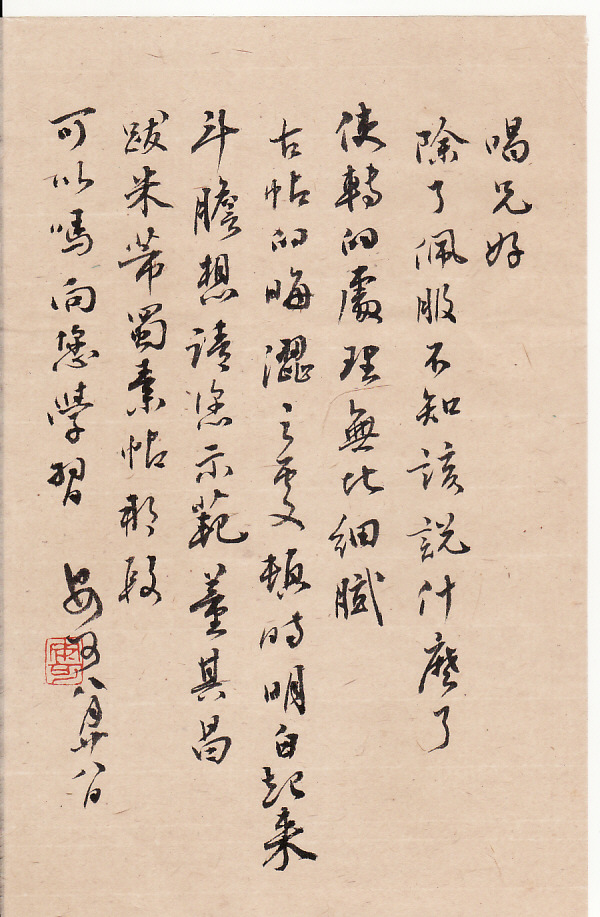 唱兄好
除了佩服不知該説什麼了
使轉的處理無比細膩
古帖的晦澀之處頓時明白起来
斗膽想請您示範董其昌
跋米芾蜀素帖那段
可以嗎向您學習
八月廿八日